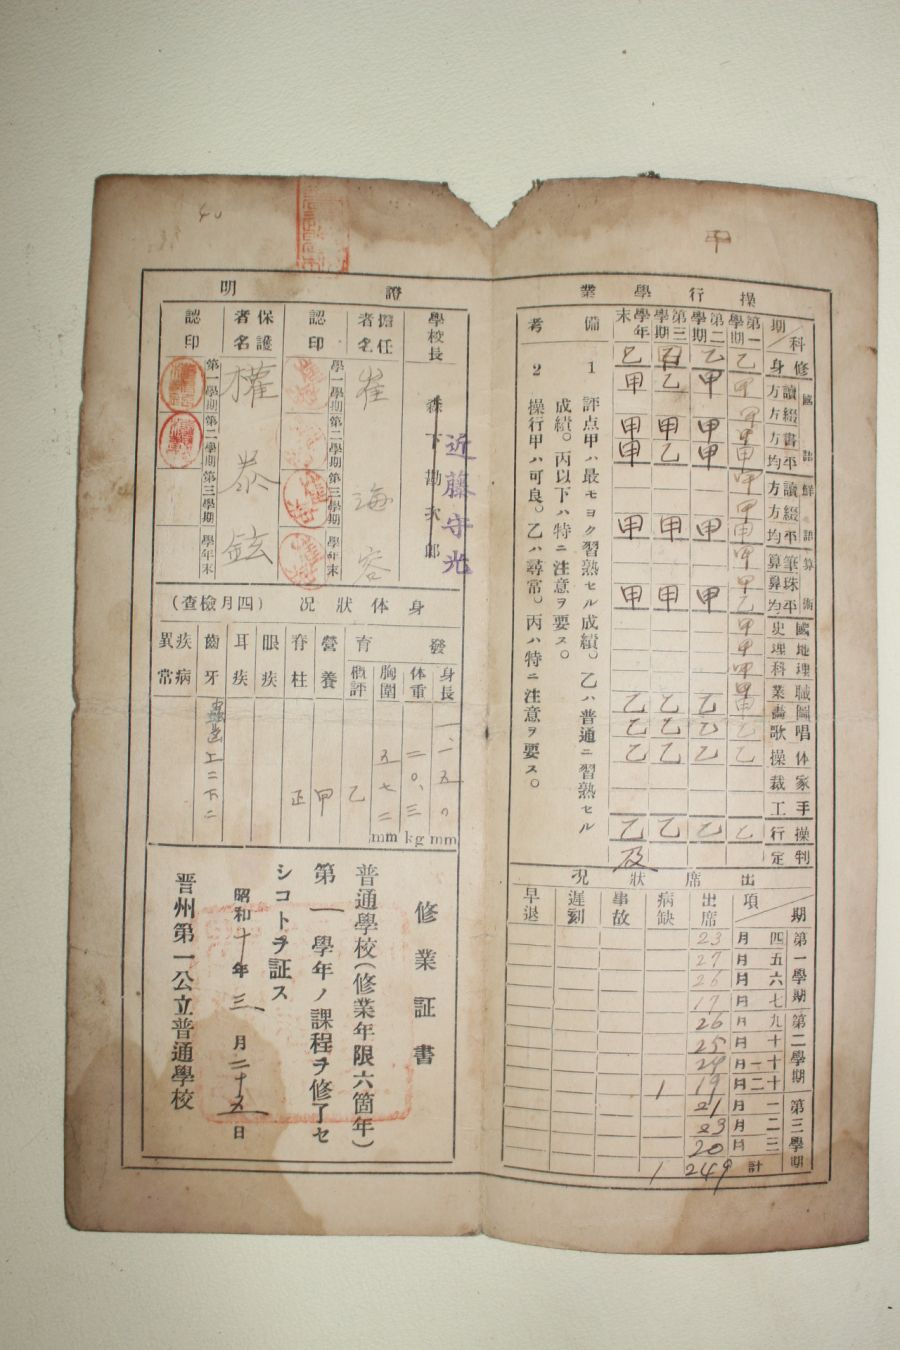 操行學業
期/科
第一學期
第二學期
第三學期
學年末
修身 乙 乙 甲 乙
國語
讀方 甲 甲 乙 甲
綴方 甲
書方 甲 甲 甲 甲
平均 甲 甲 乙 甲
鮮語
讀方 甲
綴方 甲
平均 甲 甲 甲 甲
算術
筆算 甲
珠算 甲
平均 乙 甲 甲 甲
國史 甲
地理 甲
理科 甲
職業 甲
圖畵 甲 乙 乙 乙
唱歌 乙 乙 乙 乙
体操 乙 乙 乙 乙
家裁
手工
操行 乙 乙 乙 乙
判定 及
備考
1 評点甲ハ最モヨク習熟セル成績。乙ハ普通ニ習熟セル
成績。丙以下ハ特ニ注意ヲ要ス。
2 操行甲ハ可良。乙ハ尋常。丙ハ特ニ注意ヲ要ス。
出席狀況
期/項
出席
病缺
事故
遲刻
早退
第一學期
四月 23
五月 27
六月 26
七月 17
第二學期
九月 26
十月 25
十一月 24
十二月 19 1
第三學期
一月 21
二月 23
三月 20
計 249 1
證明
學校長 森下勘次郞
近藤守光
擔任者名 崔海容
認印
第一學期
第二學期
第三學期
學年末
保護者名 權泰鉉
認印
第一學期
第二學期
第三學期
學年末
身体狀況(四月檢査)
發育
身長 一、一五〇 mm
体重 二〇、三 kg
胸圍 五七二 mm
槪評 乙
營養 甲
脊柱 正
眼疾
耳疾
齒牙 蟲齒上二下二
疾病異常
修業証書
普通學校(修業年限六箇年)
第一學年ノ課程ヲ修了セ
シコトヲ証ス
昭和十年三月二十五日
晋州第一公立普通學校